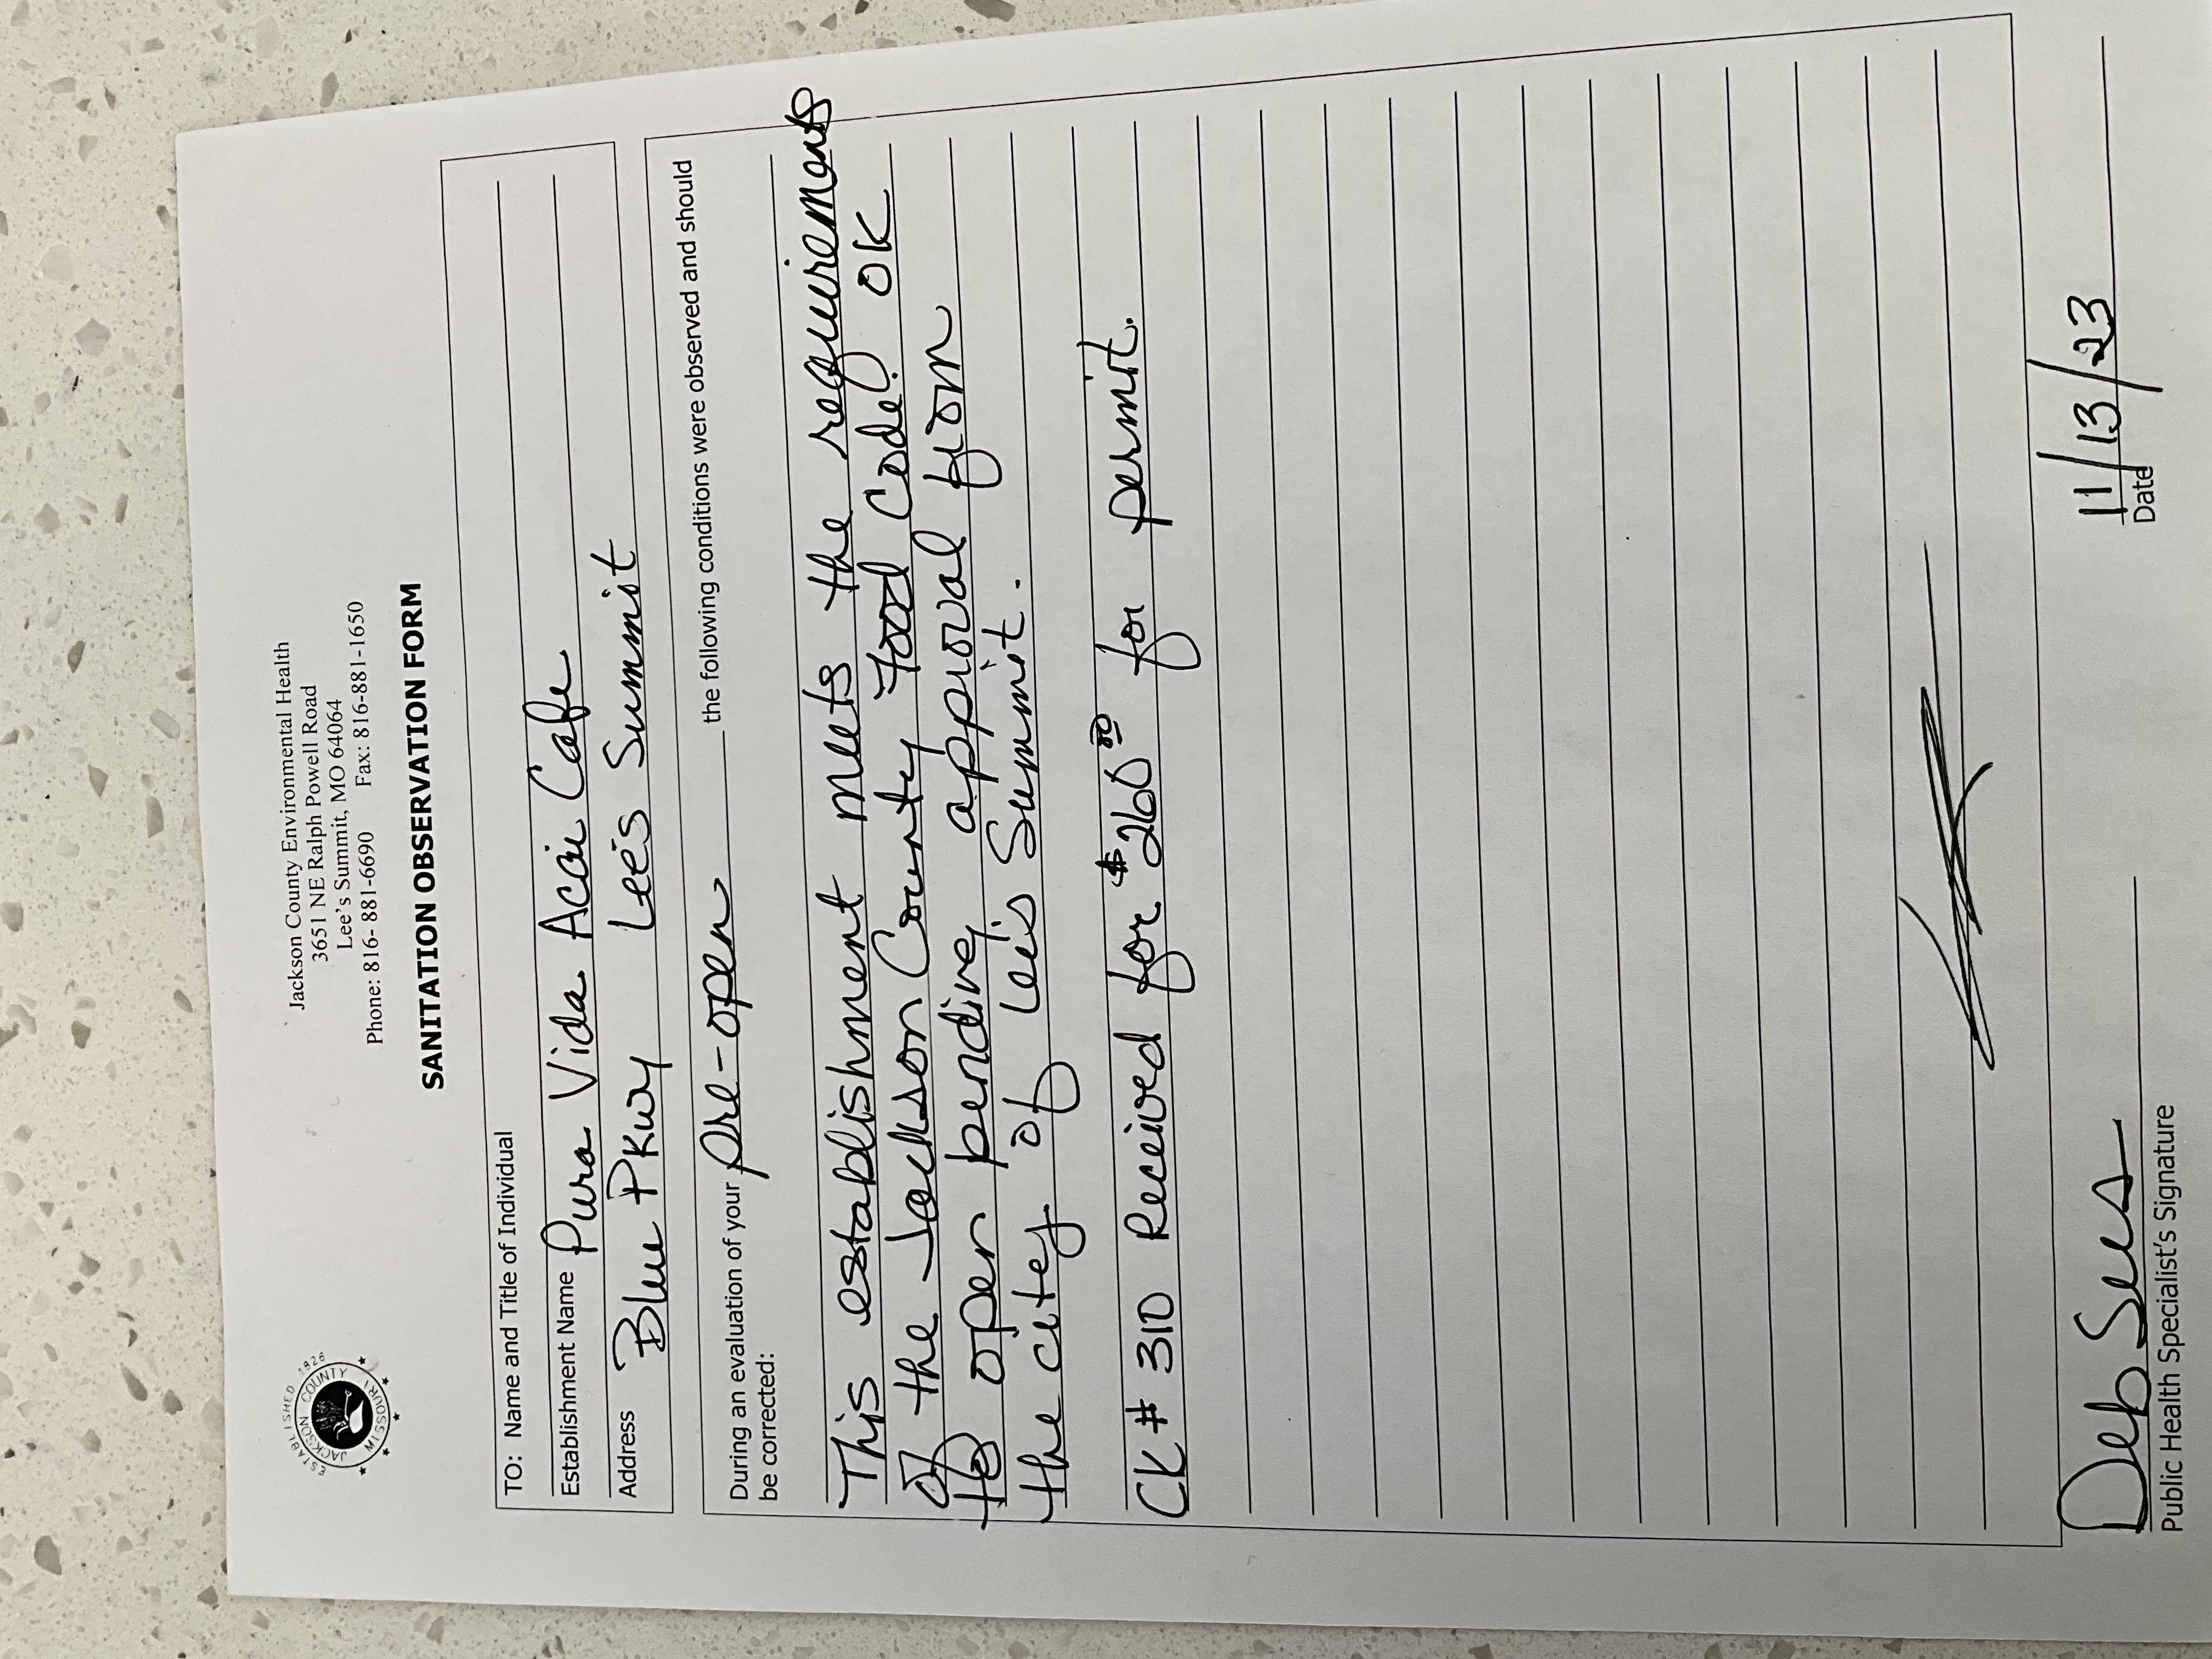 ESTABLISHED 1826
JACKSON COUNTY
MISSOURI
Jackson County Environmental Health
3651 NE Ralph Powell Road
Lee's Summit, MO 64064
Phone: 816- 881-6690 Fax: 816-881-1650
SANITATION OBSERVATION FORM
TO: Name and Title of Individual
Establishment Name Pura Vida Acai Cafe
Address Blue Pkwy Lee's Summit
During an evaluation of your pre-open the following conditions were observed and should
be corrected:
This establishment meets the requirements
of the Jackson County Food Code. OK
to open pending approval from
the city of Lee's Summit.
CK # 310 Received for $260.00 for permit.
Deb Sees 11/13/23
Public Health Specialist's Signature Date